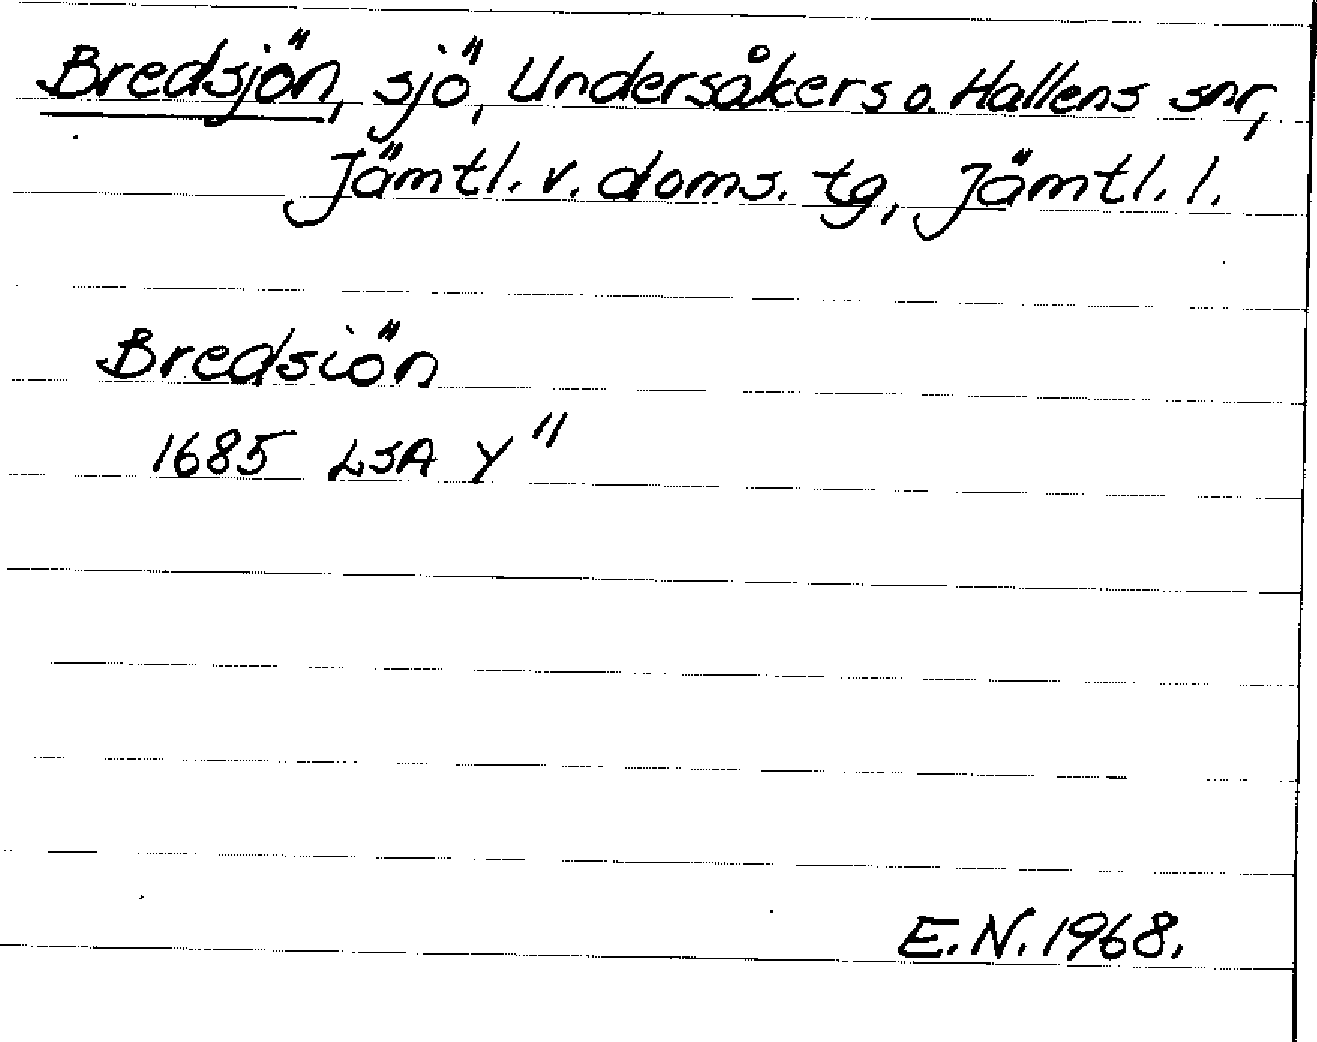 Bredsjön, sjö, Undersåkers o. Hallens snr,
Jämtl. v. doms. tg, Jämtl. l.
Bredsiön
1685 LSA Y"
E.N. 1968.